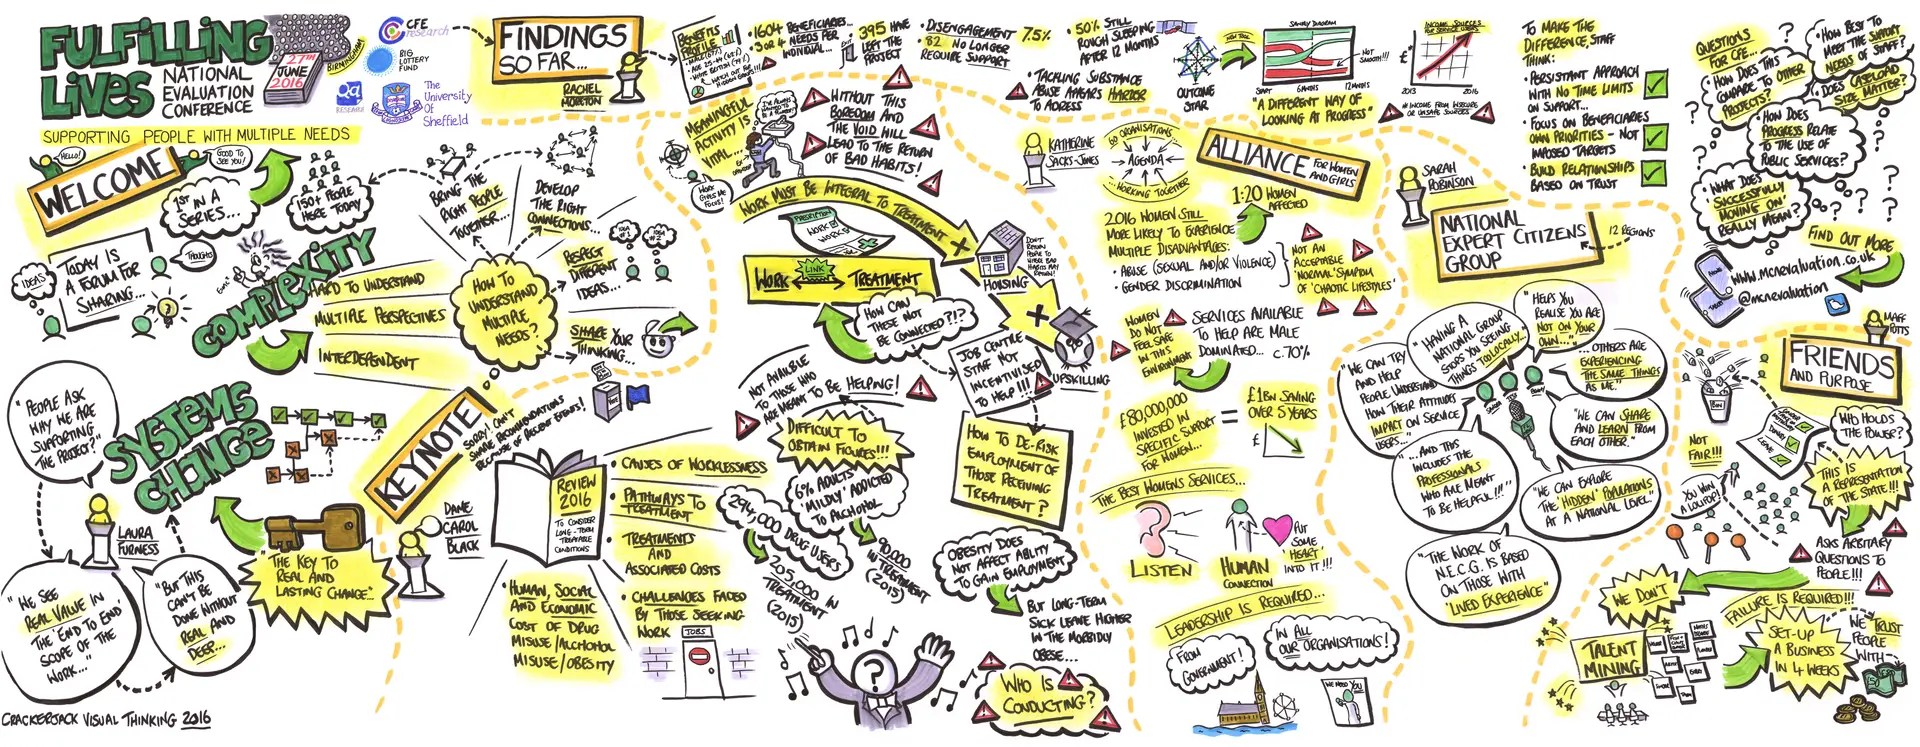 FULFILLING
LIVES
NATIONAL
EVALUATION
CONFERENCE
27TH
JUNE
2016
BIRMINGHAM
CFE
research
BIG
LOTTERY
FUND
Qa
RESEARCH
The
University
Of
Sheffield
SUPPORTING PEOPLE WITH MULTIPLE NEEDS
HELLO!
GOOD TO
SEE YOU!
WELCOME
1ST IN A
SERIES...
150+ PEOPLE
HERE TODAY
IDEAS
TODAY IS
A FORUM FOR
SHARING...
THOUGHTS
COMPLEXITY
HARD TO UNDERSTAND
MULTIPLE PERSPECTIVES
INTERDEPENDENT
BRING THE
RIGHT PEOPLE
TOGETHER...
DEVELOP
THE RIGHT
CONNECTIONS...
RESPECT
DIFFERENT
IDEAS...
IDEA
#1
IDEA
#2
SHARE YOUR
THINKING...
HOW TO
UNDERSTAND
MULTIPLE
NEEDS?
"PEOPLE ASK
WHY WE ARE
SUPPORTING
THE PROJECT?"
SYSTEMS
CHANGE
LAURA
FURNESS
"WE SEE
REAL VALUE IN
THE END TO END
SCOPE OF THE
WORK...
"BUT THIS
CAN'T BE
DONE WITHOUT
REAL AND
DEEP...
"THE KEY TO
REAL AND
LASTING CHANGE"
CRACKERJACK VISUAL THINKING 2016
FINDINGS
SO FAR...
RACHEL
MORETON
BENEFITS
PROFILE
1604 BENEFICIARIES...
3 OR 4 NEEDS PER
INDIVIDUAL...
395 HAVE
LEFT THE
PROJECT
• DISENGAGEMENT 7.5%
• 82 NO LONGER
REQUIRE SUPPORT
• 50% STILL
ROUGH SLEEPING
AFTER 12 MONTHS
• TACKLING SUBSTANCE
ABUSE APPEARS HARDER
TO ADRESS
OUTCOME
STAR
NEW TOOL
SANKEY DIAGRAM
START
6 MONTHS
12 MONTHS
NOT
SMOOTH!!!
"A DIFFERENT WAY OF
LOOKING AT PROGRESS"
INCOME SOURCES
FOR SERVICE USERS
£
2013
2016
% INCOME FROM INSECURE
OR UNSAFE SOURCES
TO MAKE THE
DIFFERENCE, STAFF
THINK:
• PERSISTANT APPROACH
WITH NO TIME LIMITS
ON SUPPORT...
• FOCUS ON BENEFICIARIES
OWN PRIORITIES - NOT
IMPOSED TARGETS
• BUILD RELATIONSHIPS
BASED ON TRUST
QUESTIONS
FOR CFE...
• HOW DOES THIS
COMPARE TO OTHER
PROJECTS?
• HOW BEST TO
MEET THE SUPPORT
NEEDS OF STAFF?
• DOES CASELOAD
SIZE MATTER?
• HOW DOES
PROGRESS RELATE
TO THE USE OF
PUBLIC SERVICES?
• WHAT DOES
'SUCCESSFULLY
MOVING ON'
REALLY MEAN?
FIND OUT MORE
www.mcnevaluation.co.uk
@mcnevaluation
KEYNOTE
SORRY! CAN'T
SHARE RECOMMENDATIONS
BECAUSE OF RECENT EVENTS!
DAME
CAROL
BLACK
REVIEW
2016
TO CONSIDER
LONG-TERM
TREATABLE
CONDITIONS
• CAUSES OF WORKLESSNESS
• PATHWAYS TO
TREATMENT
• TREATMENTS
AND
ASSOCIATED COSTS
• CHALLENGES FACED
BY THOSE SEEKING
WORK
JOBS
• HUMAN, SOCIAL
AND ECONOMIC
COST OF DRUG
MISUSE/ALCHOHOL
MISUSE/OBESITY
MEANINGFUL
ACTIVITY IS
VITAL...
WORK
GIVES ME
FOCUS!
WITHOUT THIS
BOREDOM AND
THE VOID WILL
LEAD TO THE RETURN
OF BAD HABITS!
WORK MUST BE INTEGRAL TO TREATMENT
PRESCRIPTION
WORK
WORKS
WORK
LINK
TREATMENT
HOW CAN
THESE NOT
BE CONNECTED?!?
HOUSING
DON'T
RETURN
PEOPLE TO
WHERE BAD
HABITS MAY
RETURN!
UPSKILLING
JOB CENTRE
STAFF NOT
INCENTIVISED
TO HELP!!!
HOW TO DE-RISK
EMPLOYMENT OF
THOSE RECEIVING
TREATMENT?
NOT AVAILBLE
TO THOSE WHO
ARE MEANT TO BE HELPING!
DIFFICULT TO
OBTAIN FIGURES!!!
6% ADULTS
'MILDLY' ADDICTED
TO ALCHOHOL
90,000
IN TREATMENT
(2015)
294,000 DRUG USERS
205,000 IN
TREATMENT
(2015)
OBESITY DOES
NOT AFFECT ABILITY
TO GAIN EMPLOYMENT
BUT LONG-TERM
SICK LEAVE HIGHER
IN THE MORBIDLY
OBESE...
WHO IS
CONDUCTING?
KATHERINE
SACKS-JONES
60 ORGANISATIONS
AGENDA
...WORKING TOGETHER
ALLIANCE FOR WOMEN
AND GIRLS
1:20 WOMEN
AFFECTED
2016 WOMEN STILL
MORE LIKELY TO EXPERIENCE
MULTIPLE DISADVANTAGES:
• ABUSE (SEXUAL AND/OR VIOLENCE)
• GENDER DISCRIMINATION
NOT AN
ACCEPTABLE
'NORMAL' SYMPTOM
OF 'CHAOTIC LIFESTYLES'
WOMEN
DO NOT
FEEL SAFE
IN THIS
ENVIRONMENT
SERVICES AVAILABLE
TO HELP ARE MALE
DOMINATED... c.70%
£80,000,000
INVESTED IN
SPECIFIC SUPPORT
FOR WOMEN...
=
£1BN SAVING
OVER 5 YEARS
£
THE BEST WOMENS SERVICES...
LISTEN
HUMAN
CONNECTION
PUT
SOME
'HEART'
INTO IT!!!
LEADERSHIP IS REQUIRED...
FROM
GOVERNMENT!
IN ALL
OUR ORGANISATIONS!
WE NEED YOU
SARAH
ROBINSON
NATIONAL
EXPERT CITIZENS
GROUP
12 REGIONS
"WE CAN TRY
AND HELP
PEOPLE UNDERSTAND
HOW THEIR ATTITUDES
IMPACT ON SERVICE
USERS..."
"HAVING A
NATIONAL GROUP
STOPS YOU SEEING
THINGS TOO LOCALLY..."
"HELPS YOU
REALISE YOU ARE
NOT ON YOUR
OWN..."
"...OTHERS ARE
EXPERIENCING
THE SAME THINGS
AS ME."
"...AND THIS
INCLUDES THE
PROFESSIONALS
WHO ARE MEANT
TO BE HELPFUL!!!"
"WE CAN SHARE
AND LEARN FROM
EACH OTHER."
"WE CAN EXPLORE
THE 'HIDDEN' POPULATIONS
AT A NATIONAL LEVEL"
"THE WORK OF
N.E.C.G. IS BASED
ON THOSE WITH
'LIVED EXPERIENCE'"
MAFF
POTTS
FRIENDS
AND PURPOSE
BIN
LEAVE
WHO HOLDS
THE POWER?
NOT
FAIR!!!
YOU WIN
A LOLLIPOP!
THIS IS
A REPRESENTATION
OF THE STATE!!!
ASK ARBITARY
QUESTIONS TO
PEOPLE!!!
WE DON'T
TALENT
MINING
FAILURE IS REQUIRED!!!
SET-UP
A BUSINESS
IN 4 WEEKS
WE TRUST
PEOPLE
WITH